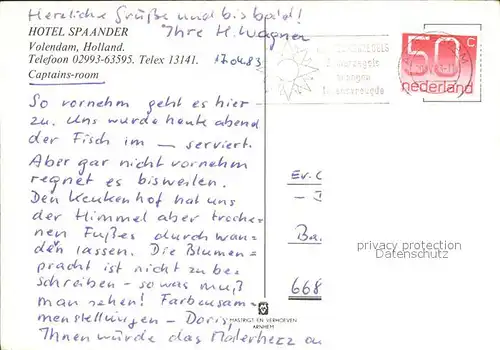 Herzliche Grüße und bis bald!
Ihre H. Wagner
HOTEL SPAANDER
Volendam, Holland.
Telefoon 02993-63595. Telex 13141.
Captains-room
17.04.83
50 c
nederland
So vornehm geht es hier -
zu. Uns wurde heute abend
der Fisch im — serviert.
Aber gar nicht vornehm
regnet es bisweilen.
Den Keukenhof hat uns
der Himmel aber trocke-
nen Fußes durchwan-
den lassen. Die Blumen-
pracht ist nicht zu be-
schreiben - sowas muß
man sehen! Farbensam-
menstellungen - Doris,
Ihnen würde das Malerherz au
Ev. C
- I
Ba
668
privacy protection
Datenschutz
MASTRIGT EN VERHOEVEN
ARNHEM